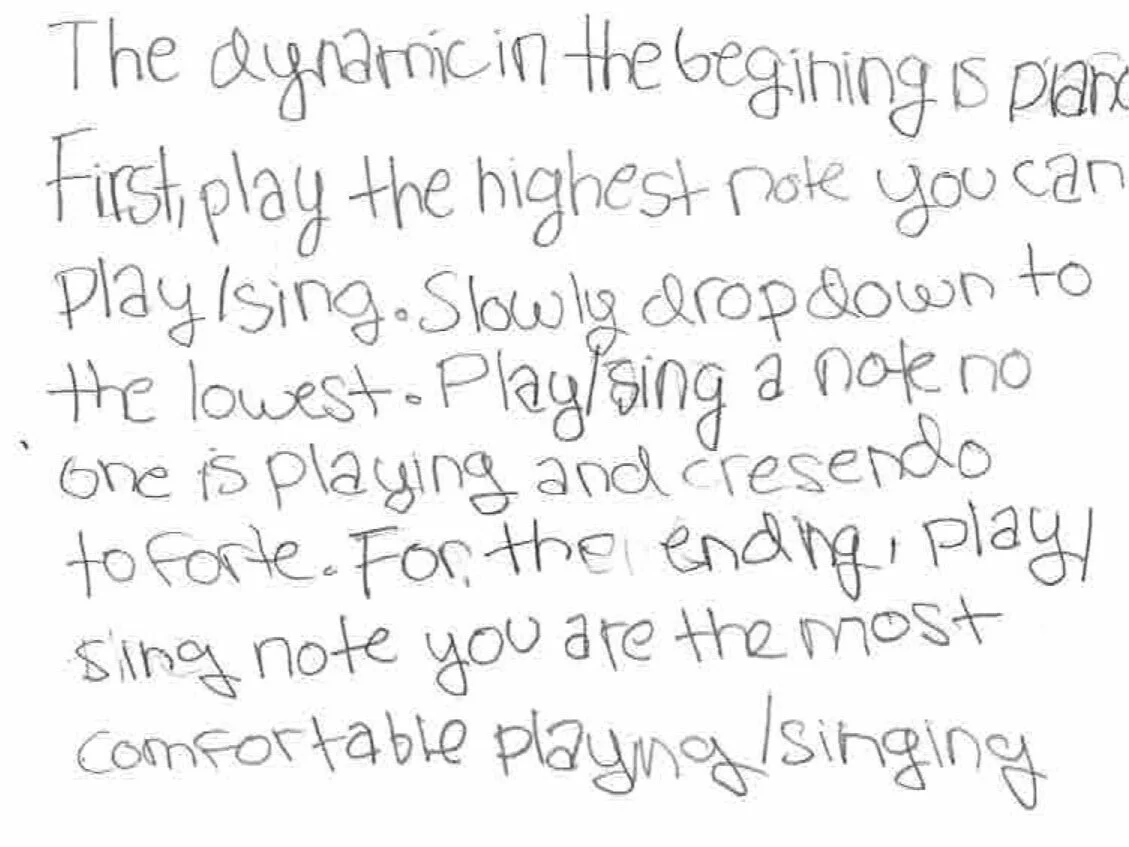 The dynamic in the begining is piano
First, play the highest note you can
play/sing. Slowly drop down to
the lowest. Play/sing a note no
one is playing and cresendo
to forte. For the ending, play/
sing note you are the most
comfortable playing/singing